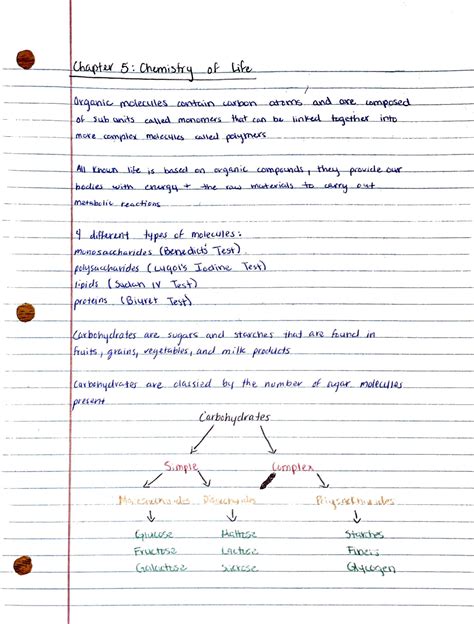 Chapter 5: Chemistry of Life
Organic molecules contain carbon atoms and are composed
of sub units called monomers that can be linked together into
more complex molecules called polymers
All known life is based on organic compounds, they provide our
bodies with energy + the raw materials to carry out
metabolic reactions
4 different types of molecules:
monosaccharides (Benedict's Test)
polysaccharides (Lugol's Iodine Test)
lipids (Sudan IV Test)
proteins (Biuret Test)
Carbohydrates are sugars and starches that are found in
fruits, grains, vegetables, and milk products
Carbohydrates are classied by the number of sugar molecules
present
Carbohydrates
Simple Complex
Monosaccharides Disaccharides Polysaccharides
Glucose Maltose Starches
Fructose Lactose Fibers
Galactose Sucrose Glycogen